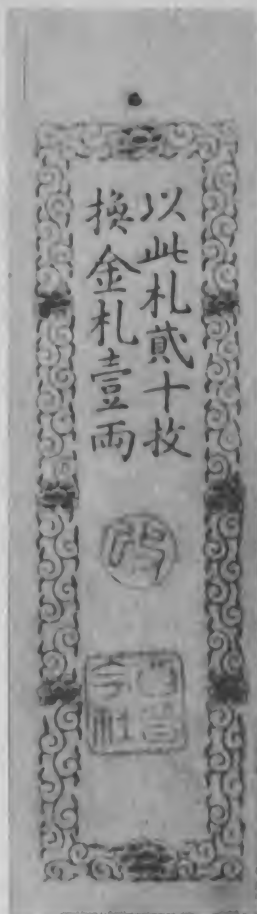 以此札貳十枚
換金札壹両
改